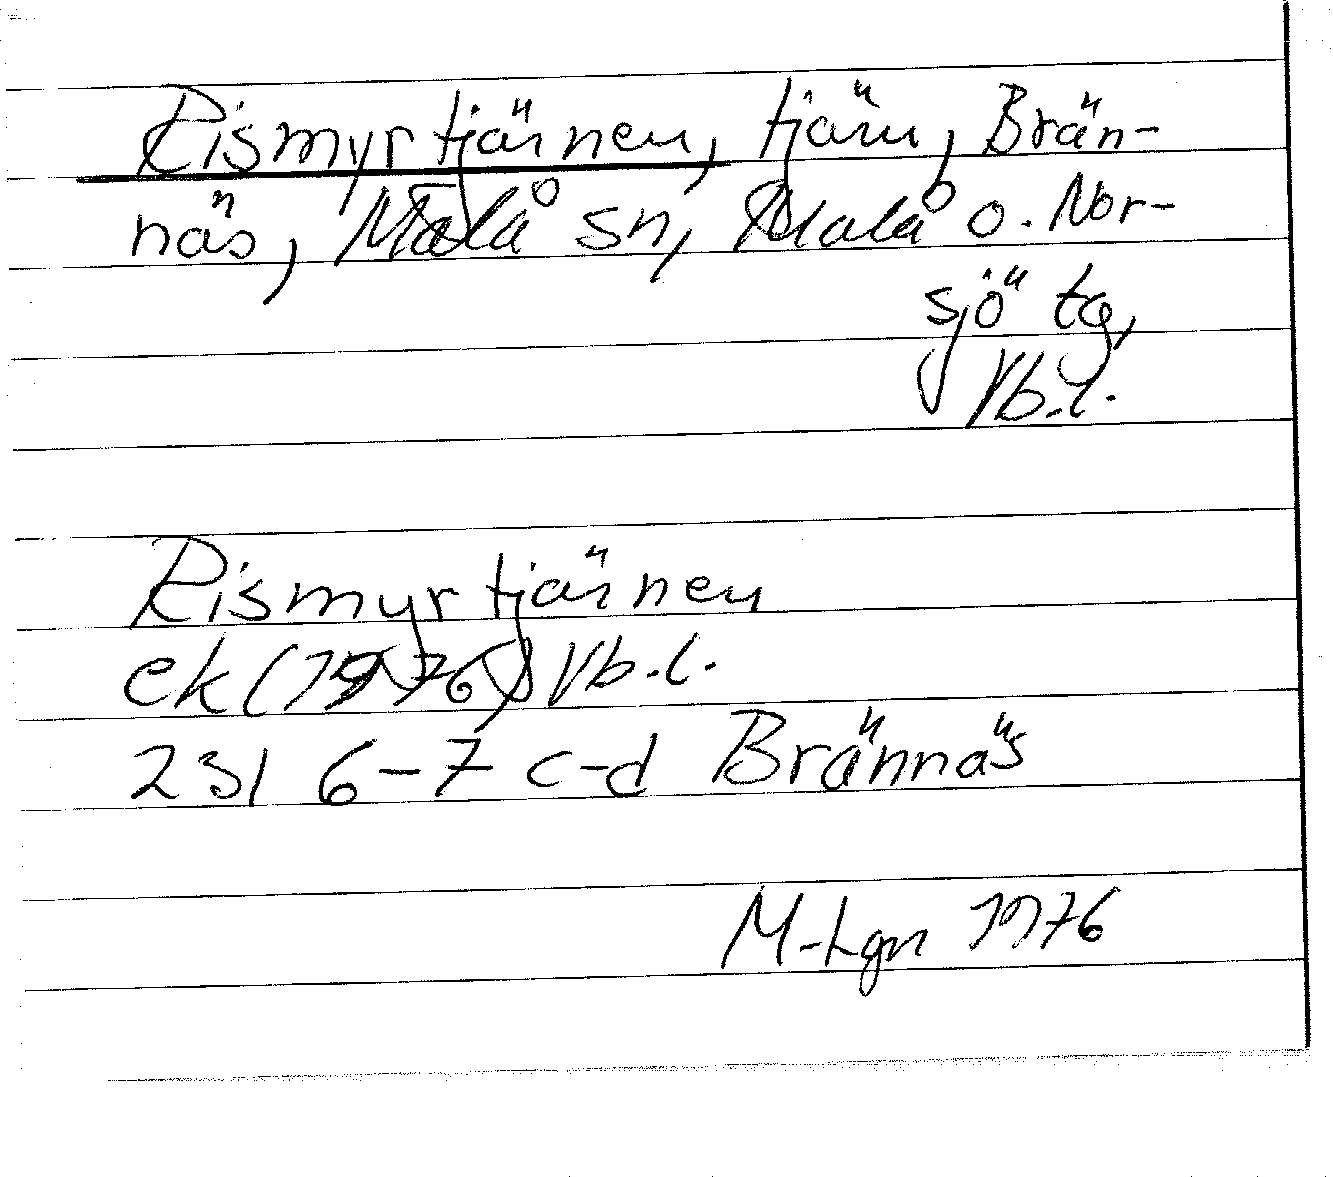 Rismyrtjärnen, tjärn, Brän-
näs, Malå sn, Malå o. Nor-
sjö tg,
Vb.l.
Rismyrtjärnen
ek (1976) Vb.l.
23I 6-7 c-d Brännäs
1976